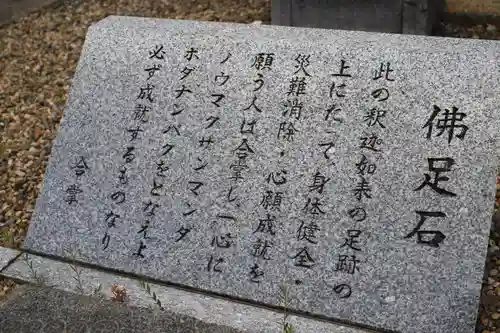 佛足石
此の釈迦如来の足跡の
上にたって、身体健全・
災難消除・心願成就を
願う人は合掌し、一心に
ノウマクサンマンダ
ボダナンバクをとなえよ
必ず成就するものなり
合掌